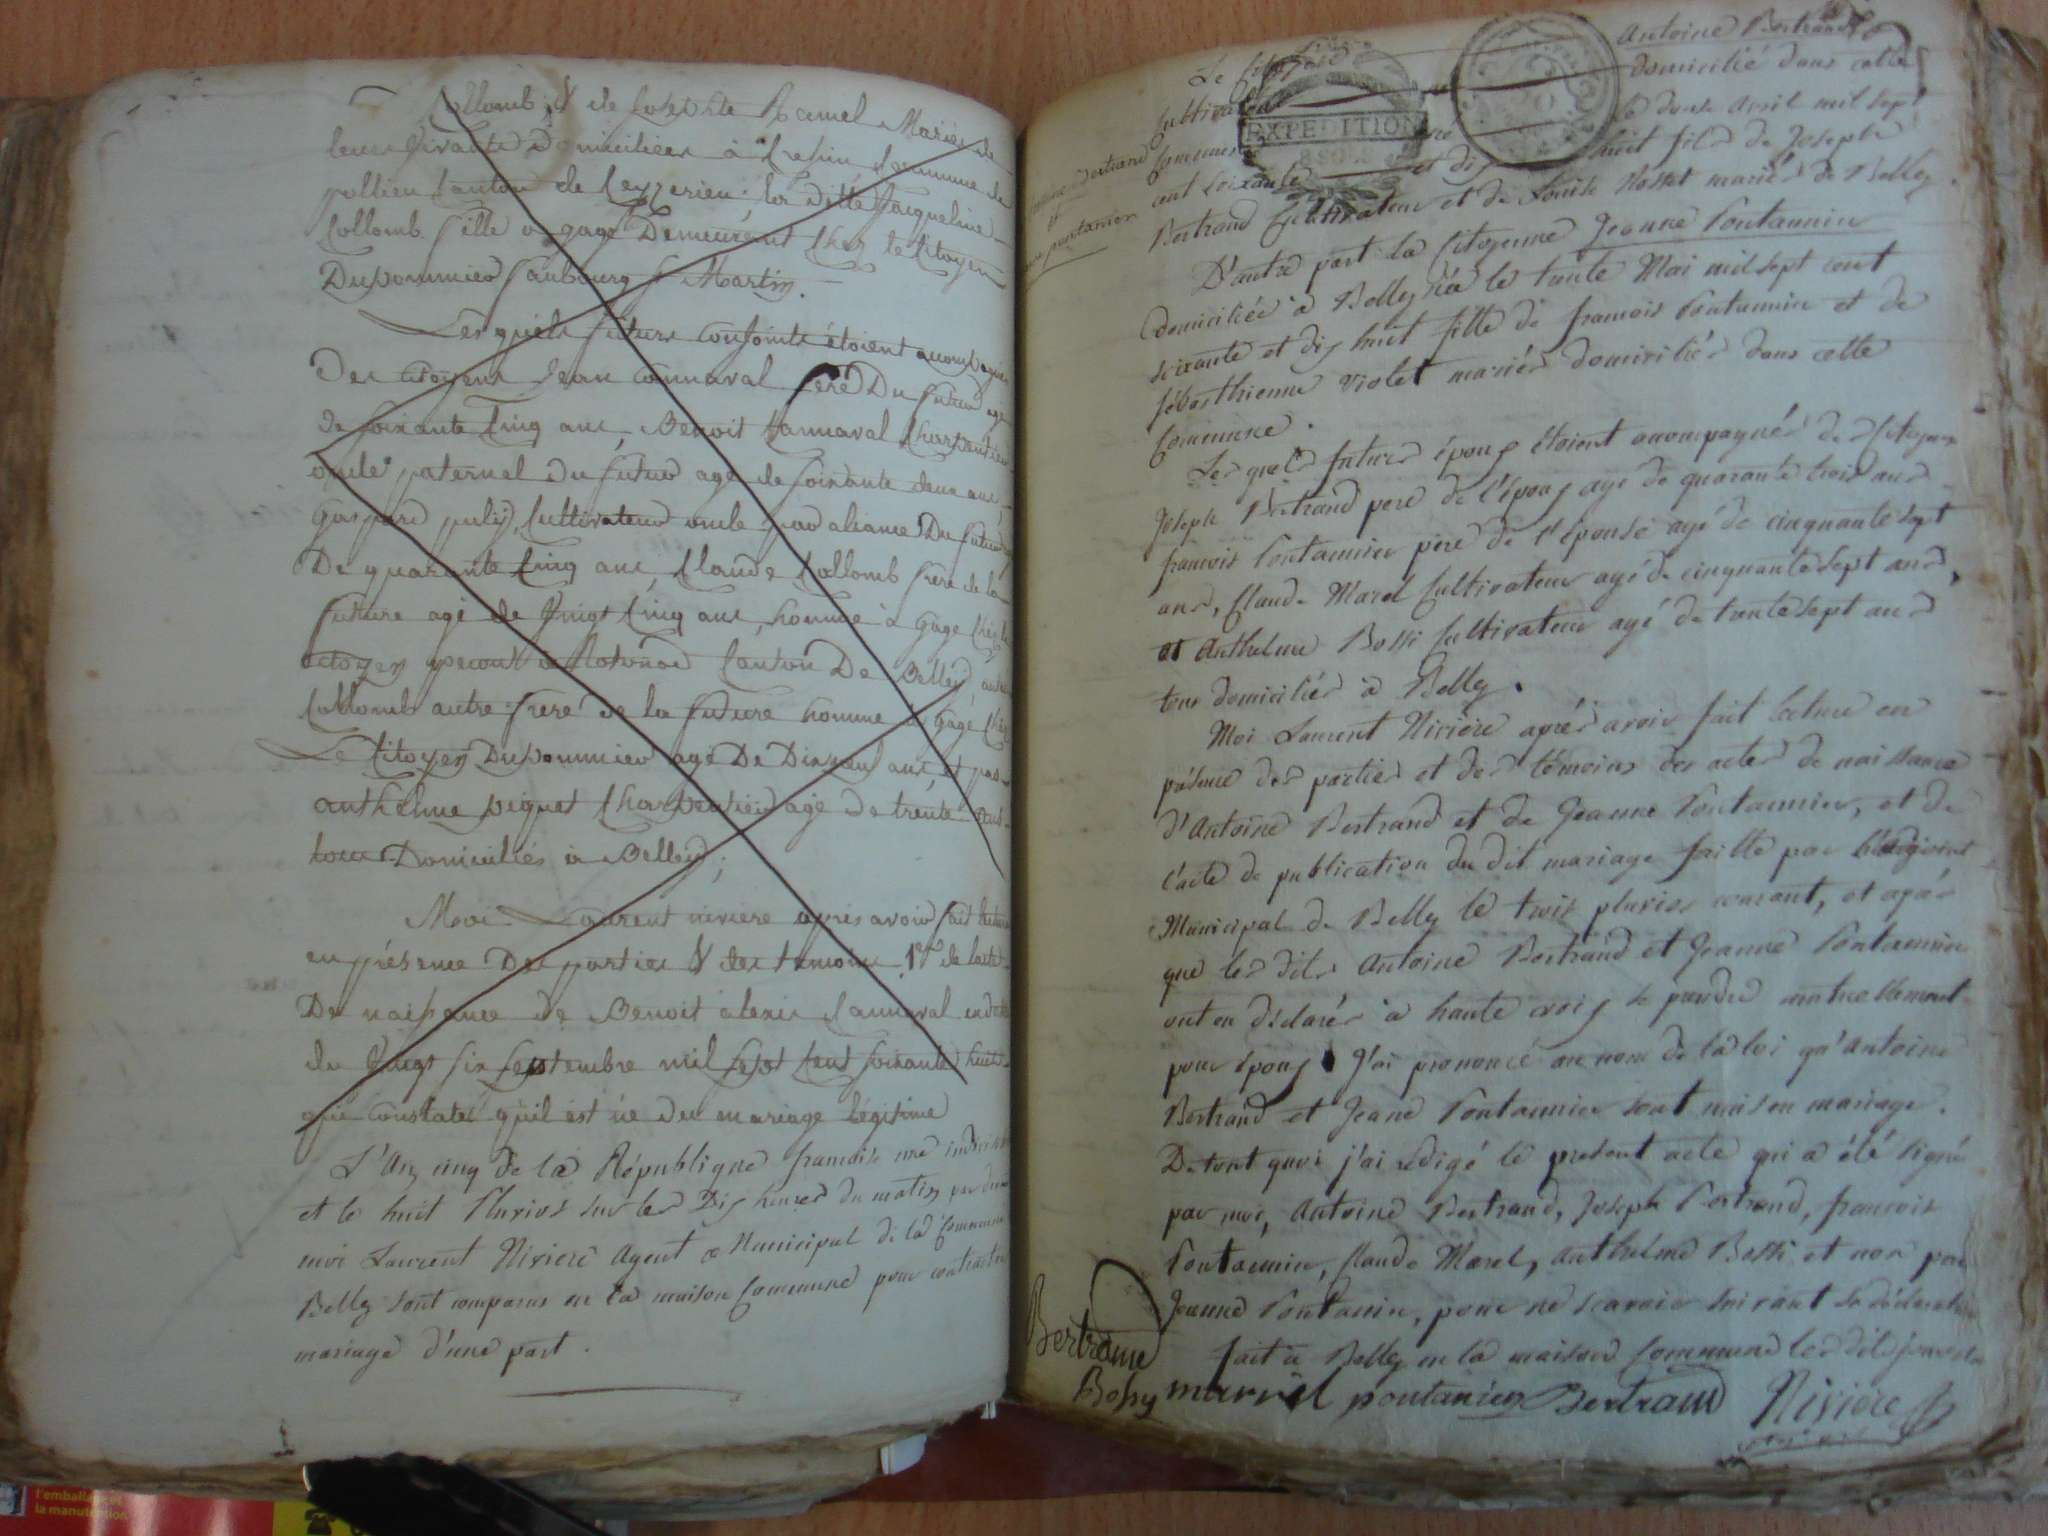 Collomb & de Josephte Ramel Mariés de
leur vivants Domiciliés à Crepin Commune de
pollieu Canton de Ceyzerieu. la ditte Jacqueline
Collomb fille à gage Demeurent Chez le Citoyen
Dupommier faubourg St Martin.
Lesquels futurs Conjoints étoient acompagnés
Des citoyens Jean Cannaval Père Du futur agé
de soixante Cinq ans, Benoit Cannaval Charpentier
oncle paternel du futur agé de soixante deux ans,
Gaspard Cultivateur oncle par aliance Du futur
De quarante Cinq ans, Claude Collomb frere de la
future agé de Vingt Cinq ans, homme à Gage Chez le
citoyen à Canton De Belley,
Collomb autre frere de la future homme à Gage Chez
Le Citoyen Dupommier agé De Dixneuf ans, et par
anthelme piquet Charpentier agé de trente ans
tous Domiciliés à Belley;
Moi Laurent riviere après avoir fait lecture
en présence Des parties & des temoins 1° de l'acte
De naissance de Benoit alexis Cannaval en date
du Vingt six septembre mil sept Cent soixante huit
qui constate qu'il est né du mariage légitime
L'An cinq de la République francoise une indivisible
et le huit Pluvios sur les Dix heures du matin par devant
moi Laurent Riviere Agent Municipal de la Commune
Belley sont comparus en la maison Commune pour contracter
mariage d'une part.
Le Citoyen Antoine Bertrand
Cultivateur domicilié dans cette
EXPEDITION
8 SOLS
Commune né le douze Avril mil sept
cent soixante et dix huit fils de Joseph
Bertrand Cultivateur et de Louise Rosset mariés de Belley.
D'autre part la Citoyenne Jeanne Pontannier
domiciliée à Belley née le trente Mai mil sept cent
soixante et dix huit fille de francois Pontannier et de
sébasthienne Violet mariés domiciliés dans cette
Commune.
Les quels futurs époux étoient acompagnés des Citoyens
Joseph Bertrand pere de l'époux agé de quarante trois ans
francois Pontannier père de l'épouse agé de cinquante sept
ans, Claude Marel Cultivateur agé de cinquante sept ans,
et Anthelme Bossi Cultivateur agé de trente sept ans
tous domiciliés à Belley.
Moi Laurent Riviere après avoir fait lecture en
présence des parties et des témoins des actes de naissance
d'Antoine Bertrand et de Jeanne Pontannier, et de
l'acte de publication du dit mariage faitte par
Municipal de Belley le trois pluvios courant, et après
que les dits Antoine Bertrand et Jeanne Pontannier
ont eu déclarés à haute voix se prendre mutuellement
pour époux J'ai prononcé au nom de la loi qu'Antoine
Bertrand et Jeane Pontannier sont unis en mariage.
De tout quoi j'ai rédigé le present acte qui a été signé
par moi, Antoine Bertrand, Joseph Bertrand, francois
Pontannier, Claude Marel, Anthelme Bossi et non par
Jeanne Pontannier, pour ne scavoir suivant sa déclaration
fait à Belley en la maison Commune les dits jour
Bertrand
Bossy marrel pontanier Bertrand Riviere
l'emballage et
la manutention